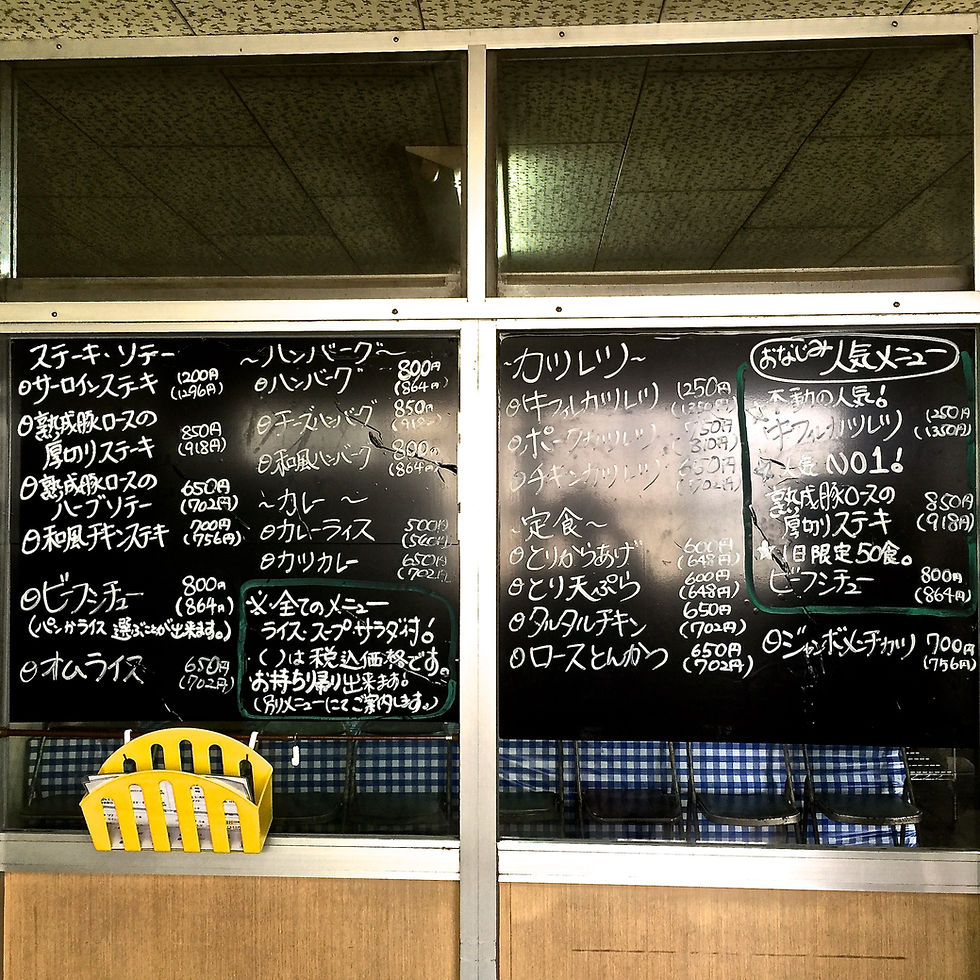 ステーキ・ソテー
⊖サーロインステーキ 1200円
(1296円)
⊖熟成豚ロースの
厚切りステーキ 850円
(918円)
⊖熟成豚ロースの
ハーブソテー 650円
(702円)
⊖和風チキンステーキ 700円
(756円)
⊖ビーフシチュー 800円
(864円)
(パンかライス選ぶことが出来ます。)
⊖オムライス 650円
(702円)
〜ハンバーグ〜
⊖ハンバーグ 800円
(864円)
⊖チーズハンバーグ 850円
⊖和風ハンバーグ 800円
(864円)
〜カレー〜
⊖カレーライス 500円
⊖カツカレー 650円
(702円)
※・全てのメニュー
ライス・スープ・サラダ付!
( )は税込価格です。
お持ち帰り出来ます!
(別メニューにてご案内します。)
〜カツレツ〜
⊖牛フィレカツレツ 1250円
(1350円)
⊖ポークカツレツ 750円
(810円)
⊖チキンカツレツ 650円
(702円)
〜定食〜
⊖とりからあげ 600円
(648円)
⊖とり天ぷら 600円
(648円)
⊖タルタルチキン 650円
(702円)
⊖ロースとんかつ 650円
(702円)
おなじみ人気メニュー
不動の人気!
牛フィレカツレツ 1250円
(1350円)
人気NO1!
熟成豚ロースの
厚切りステーキ 850円
(918円)
★1日限定50食。
ビーフシチュー 800円
(864円)
⊖ジャンボメンチカツ 700円
(756円)